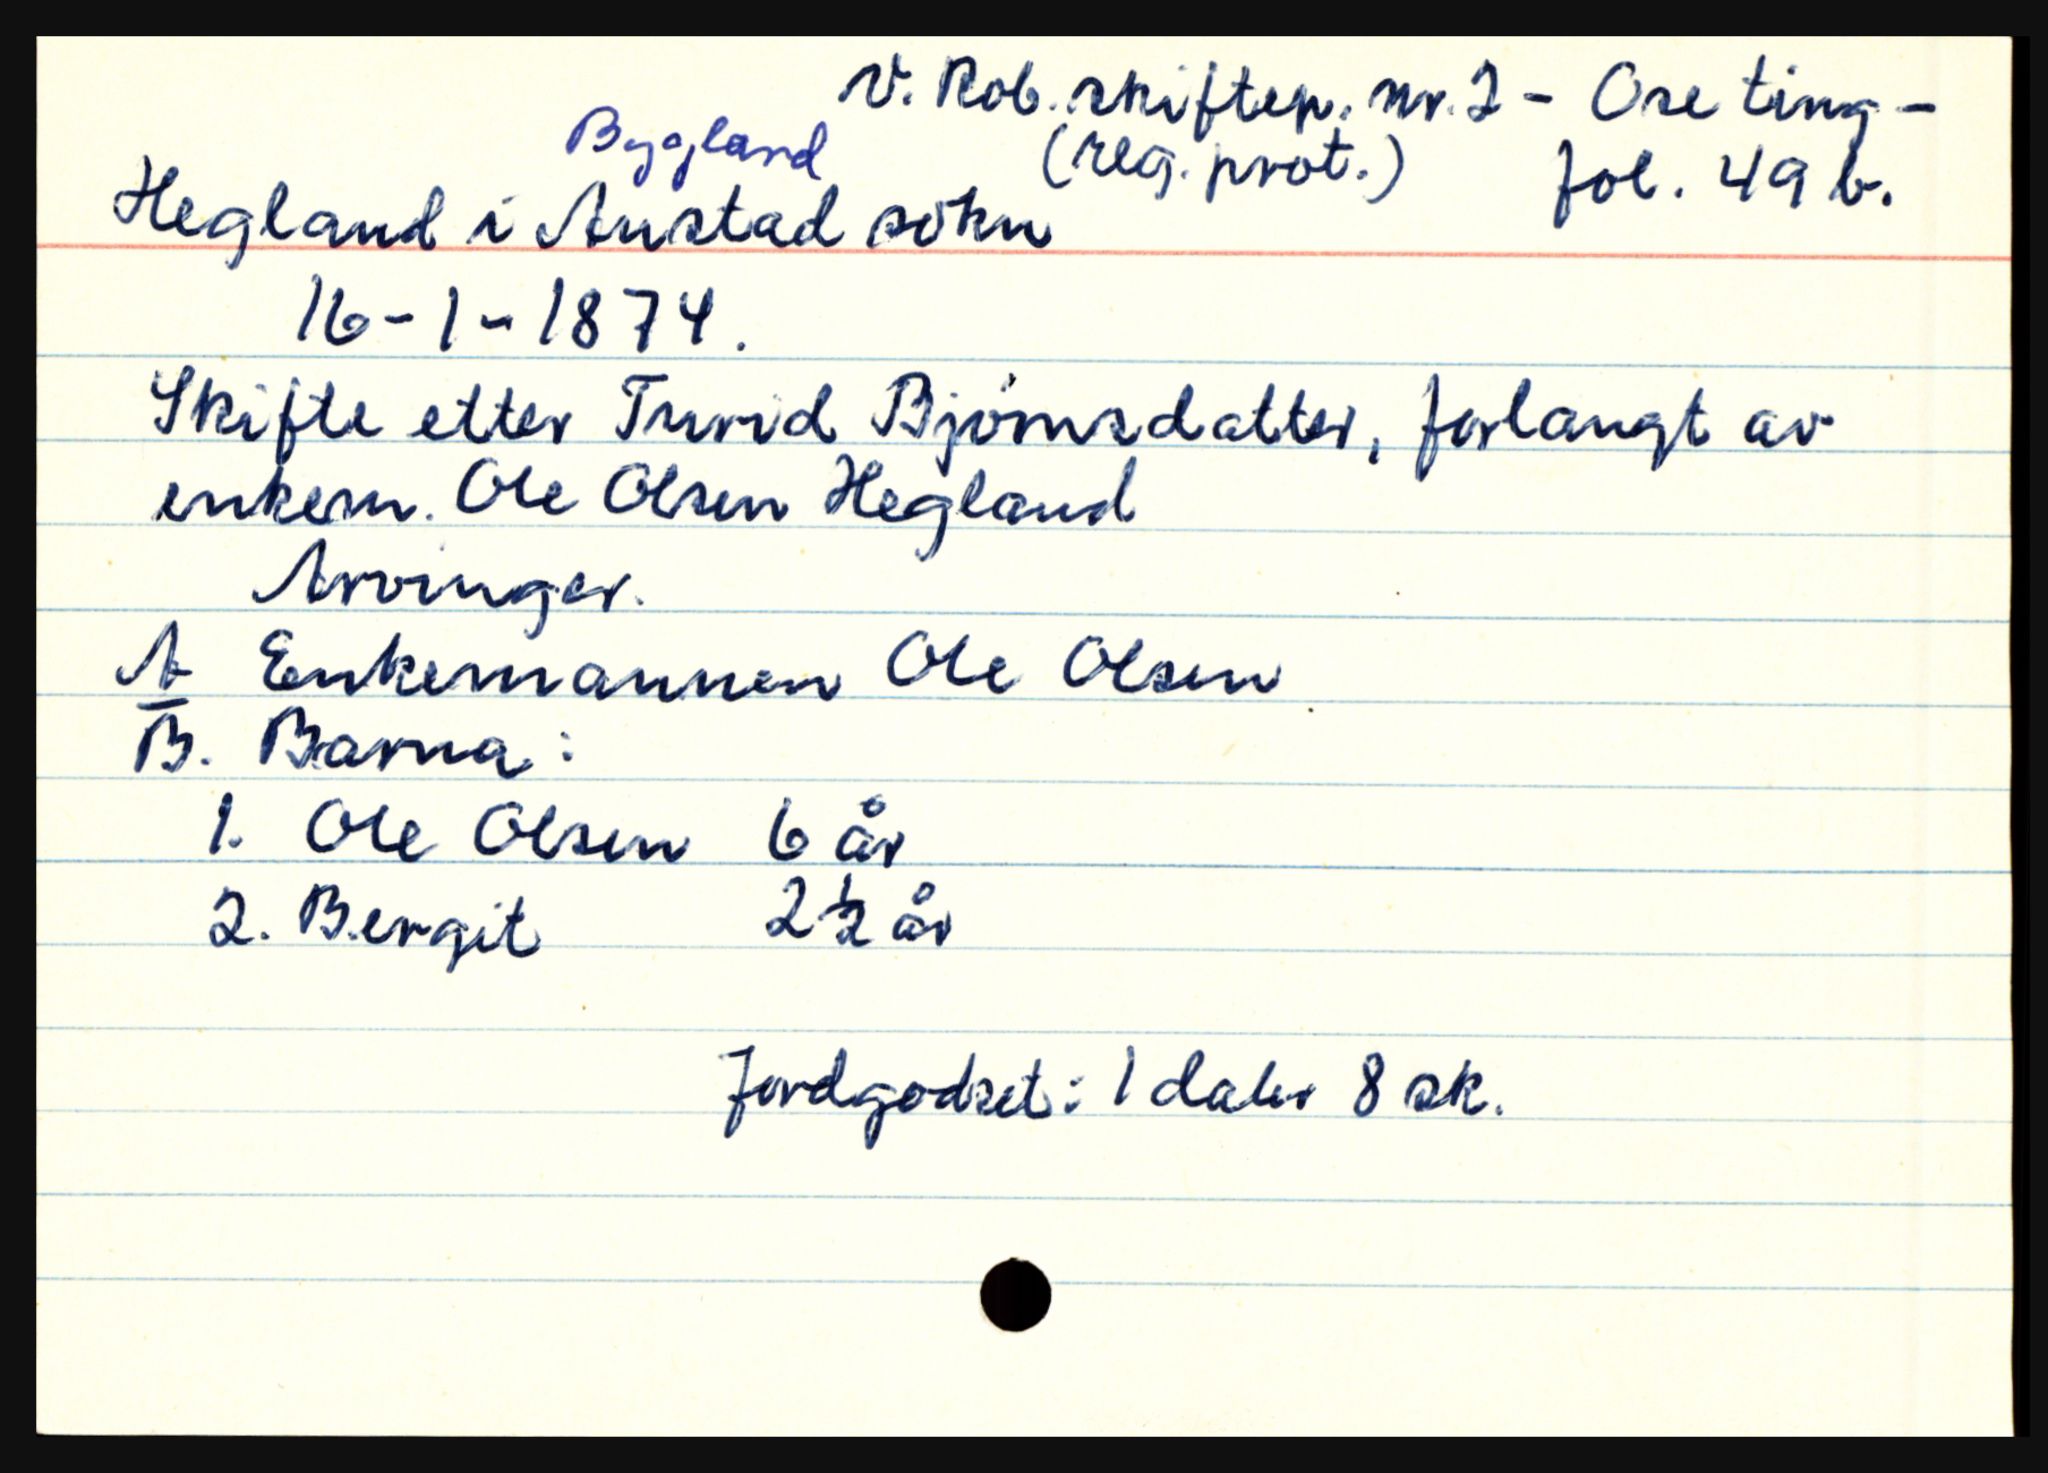 V. Rob. skiftep. nr. 2 - Ose ting -
Bygland (reg. prot.) fol. 49 b.
Hegland i Austad sokn
16-1-1874.
Skifte etter Turid Bjørnsdatter, forlangt av
enkem. Ole Olsen Hegland
Arvinger.
A Enkemannen Ole Olsen
B. Barna:
1. Ole Olsen 6 år
2. Bergit 2 1/2 år
Jordgodset: 1 daler 8 sk.